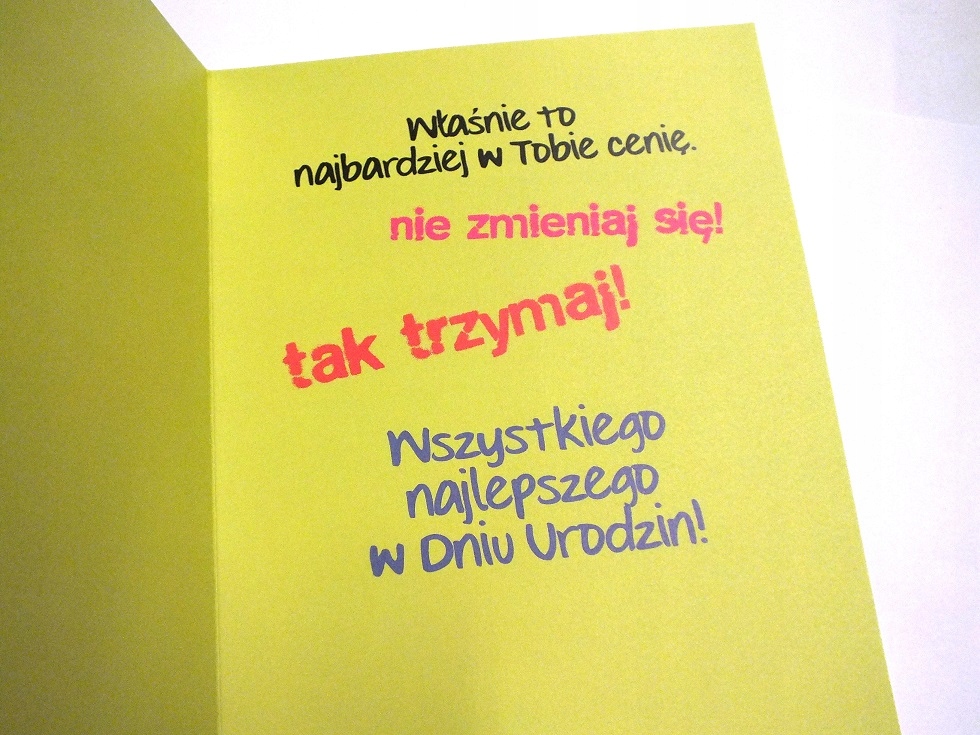 Właśnie to
najbardziej w Tobie cenię.
nie zmieniaj się!
tak trzymaj!
Wszystkiego
najlepszego
w Dniu Urodzin!